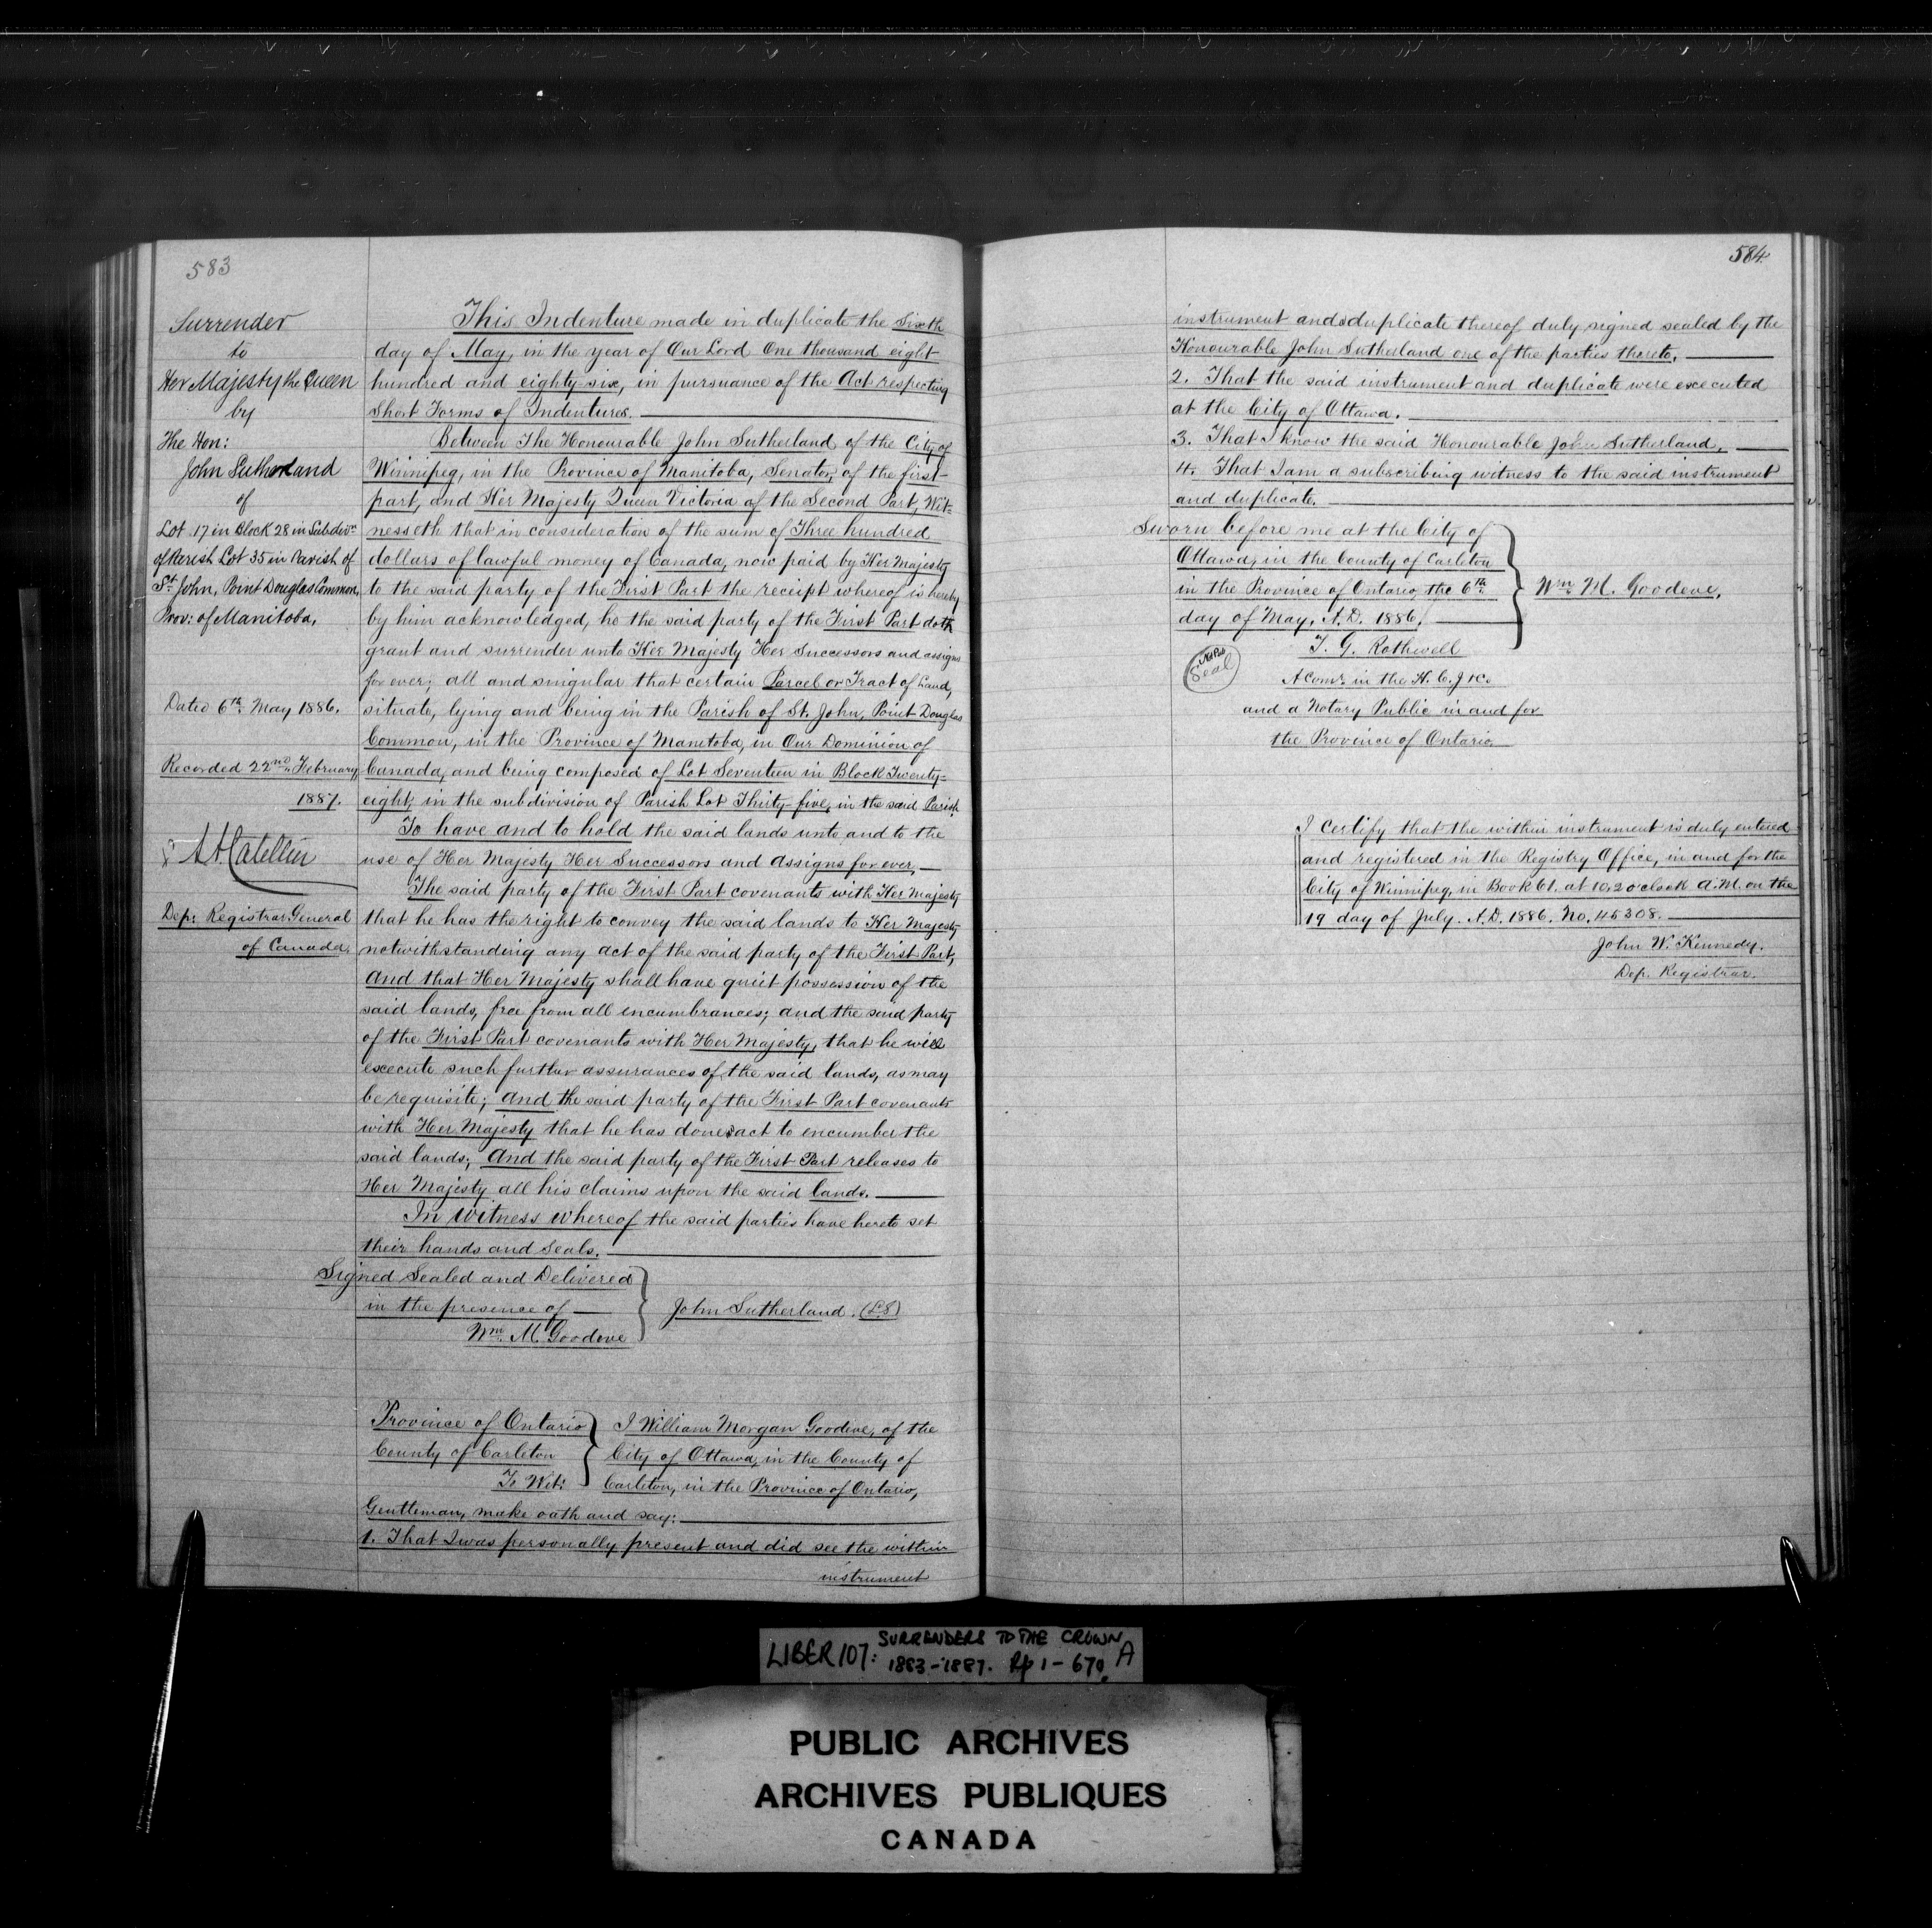 583
Surrender
to
Her Majesty the Queen
by
The Hon:
John Sutherland
of
Lot 17 in Block 28 in Subdivn
of Parish Lot 35 in Parish of
St. John, Point Douglas Common,
Prov: of Manitoba.
Dated 6th May 1886.
Recorded 22nd February
1887.
Dep: Registrar General
of Canada.
This Indenture made in duplicate the Sixth
day of May, in the year of Our Lord One thousand eight
hundred and eighty-six, in pursuance of the Act respecting
Short Forms of Indentures.
Between The Honourable John Sutherland, of the City of
Winnipeg, in the Province of Manitoba, Senator, of the first
part, and Her Majesty Queen Victoria of the Second Part, Wit=
nesseth that in consideration of the sum of Three hundred
dollars of lawful money of Canada, now paid by Her Majesty
to the said party of the First Part the receipt whereof is hereby
by him acknowledged, he the said party of the First Part doth
grant and surrender unto Her Majesty Her Successors and assigns
for ever; all and singular that certain Parcel or Tract of Land,
situate, lying and being in the Parish of St. John, Point Douglas
Common, in the Province of Manitoba, in Our Dominion of
Canada, and being composed of Lot Seventeen in Block Twenty=
eight, in the subdivision of Parish Lot Thirty-five, in the said Parish.
To have and to hold the said lands unto and to the
use of Her Majesty Her Successors and Assigns for ever,
The said party of the First Part covenants with Her Majesty
that he has the right to convey the said lands to Her Majesty
notwithstanding any act of the said party of the First Part,
And that Her Majesty shall have quiet possession of the
said lands, free from all encumbrances; and the said party
of the First Part covenants with Her Majesty, that he will
execute such further assurances of the said lands, as may
be requisite; and the said party of the First Part covenants
with Her Majesty that he has done act to encumber the
said lands; And the said party of the First Part releases to
Her Majesty all his claims upon the said lands.
In Witness whereof the said parties have hereto set
their hands and Seals.
Signed Sealed and Delivered
in the presence of
Wm. M. Goodeve
John Sutherland. (LS)
Province of Ontario
County of Carleton
To Wit:
I William Morgan Goodeve, of the
City of Ottawa, in the County of
Carleton, in the Province of Ontario,
Gentleman, make oath and say:
1. That I was personally present and did see the within
instrument
584.
instrument and duplicate thereof duly signed sealed by the
Honourable John Sutherland one of the parties thereto.
2. That the said instrument and duplicate were executed
at the City of Ottawa.
3. That I know the said Honourable John Sutherland.
4. That I am a subscribing witness to the said instrument
and duplicate.
Sworn before me at the City of
Ottawa, in the County of Carleton
in the Province of Ontario, the 6th
day of May, A.D. 1886.
Wm M. Goodeve.
T. G. Rothwell
Seal
A Comr. in the H. C. J &c.
and a Notary Public in and for
the Province of Ontario.
I Certify that the within instrument is duly entered
and registered in the Registry Office, in and for the
City of Winnipeg, in Book 61. at 10.20 oclock A.M. on the
19 day of July. A.D. 1886. No. 45308.
John W. Kennedy.
Dep. Registrar.
LIBER 107: SURRENDERS TO THE CROWN
1883-1887. Pp 1-670. A
PUBLIC ARCHIVES
ARCHIVES PUBLIQUES
CANADA